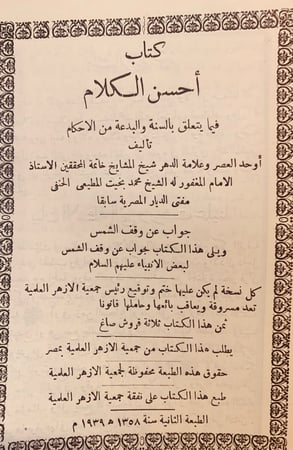 كتاب
أحسن الكلام
فيما يتعلق بالسنة والبدعة من الاحكام
تأليف
أوحد العصر وعلامة الدهر شيخ المشايخ خاتمة المحققين الاستاذ
الامام المغفور له الشيخ محمد بخيت المطيعى الحنفى
مفتى الديار المصرية سابقا
جواب عن وقف الشمس
ويلى هذا الكتاب جواب عن وقف الشمس
لبعض الانبياء عليهم السلام
كل نسخة لم يكن عليها ختم وتوقيع رئيس جمعية الازهر العلمية
تعد مسروقة ويعاقب بائعها وحاملها قانونا
ثمن هذا الكتاب ثلاثة قروش صاغ
يطلب هذا الكتاب من جمعية الازهر العلمية بمصر
حقوق هذه الطبعة محفوظة لجمعية الازهر العلمية
طبع هذا الكتاب على نفقة جمعية الازهر العلمية
الطبعة الثانية سنة ١٣٥٨ ه ١٩٣٩ م